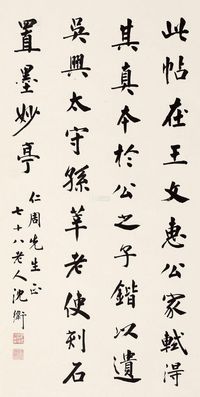 此帖在王文惠公家軾得
其真本於公之子鍇以遺
吳興太守孫莘老使刻石
置墨妙亭
仁周先生正
七十八老人沈衛